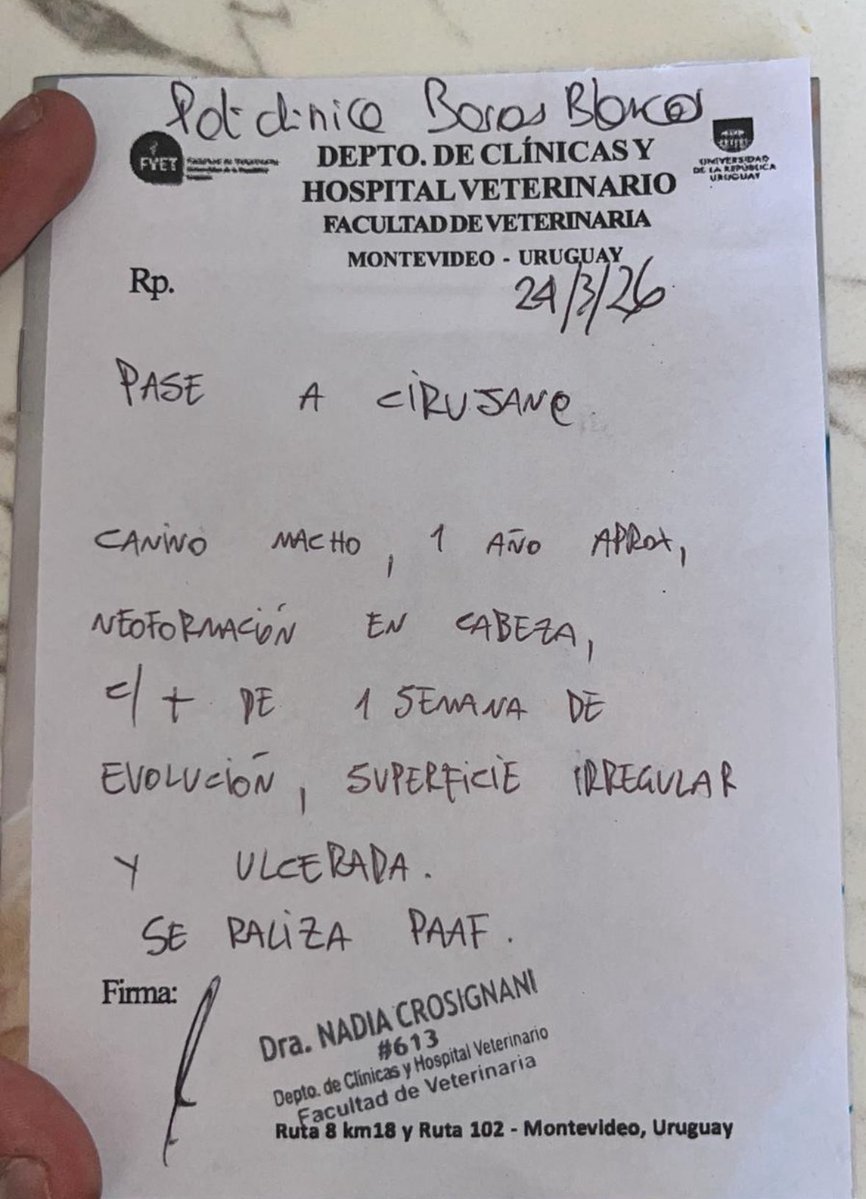 Policlinica Barros Blancos
FVET
UNIVERSIDAD
DE LA REPÚBLICA
URUGUAY
DEPTO. DE CLÍNICAS Y
HOSPITAL VETERINARIO
FACULTAD DE VETERINARIA
MONTEVIDEO - URUGUAY
Rp.
24/3/26
PASE A CIRUJANE
CANINO MACHO, 1 AÑO APROX,
NEOFORMACIÓN EN CABEZA,
c/ + DE 1 SEMANA DE
EVOLUCIÓN, SUPERFICIE IRREGULAR
Y ULCERADA.
SE RALIZA PAAF.
Firma:
Dra. NADIA CROSIGNANI
#613
Depto. de Clínicas y Hospital Veterinario
Facultad de Veterinaria
Ruta 8 km18 y Ruta 102 - Montevideo, Uruguay